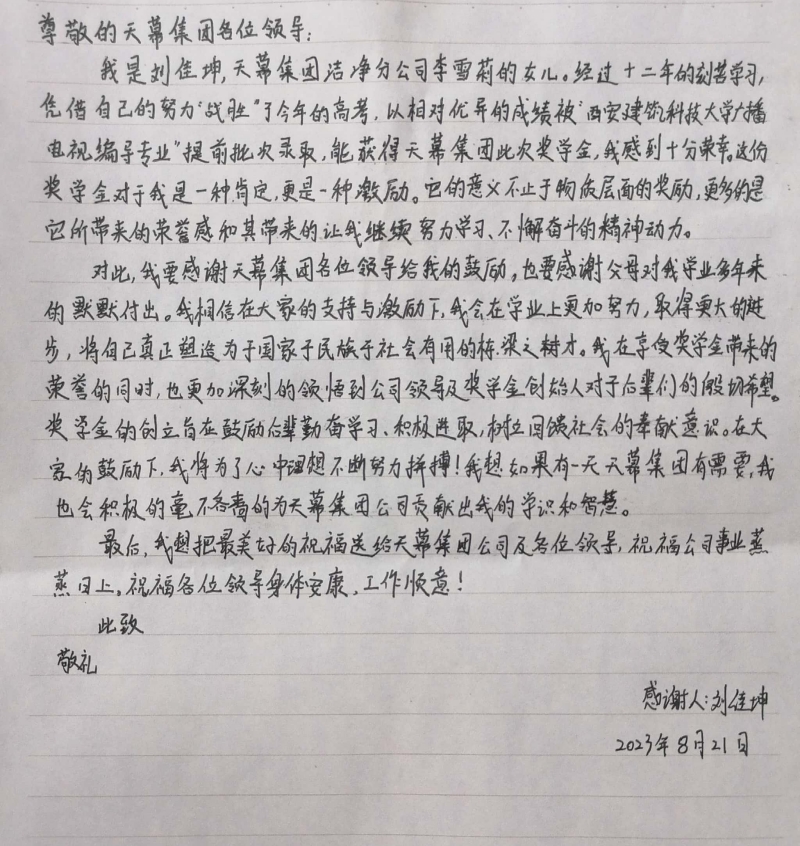 尊敬的天幕集团各位领导：
我是刘佳坤，天幕集团洁净分公司李雪莉的女儿。经过十二年的刻苦学习，
凭借自己的努力“战胜”了今年的高考，以相对优异的成绩被“西安建筑科技大学广播
电视编导专业”提前批次录取，能获得天幕集团此次奖学金，我感到十分荣幸。这份
奖学金对于我是一种肯定，更是一种激励。它的意义不止于物质层面的奖励，更多的是
它所带来的荣誉感和其带来的让我继续努力学习、不懈奋斗的精神动力。
对此，我要感谢天幕集团各位领导给我的鼓励，也要感谢父母对我学业多年来
的默默付出。我相信在大家的支持与激励下，我会在学业上更加努力，取得更大的进
步，将自己真正塑造为于国家于民族于社会有用的栋梁之树才。我在享受奖学金带来的
荣誉的同时，也更加深刻的领悟到公司领导及奖学金创始人对于后辈们的殷切希望。
奖学金的创立旨在鼓励后辈勤奋学习、积极进取，树立回馈社会的奉献意识。在大
家的鼓励下，我将为了心中理想不断努力拼搏！我想如果有一天天幕集团有需要，我
也会积极的毫不吝啬的为天幕集团公司贡献出我的学识和智慧。
最后，我想把最美好的祝福送给天幕集团公司及各位领导，祝福公司事业蒸
蒸日上。祝福各位领导身体安康，工作顺意！
此致
敬礼
感谢人：刘佳坤
2023年8月21日